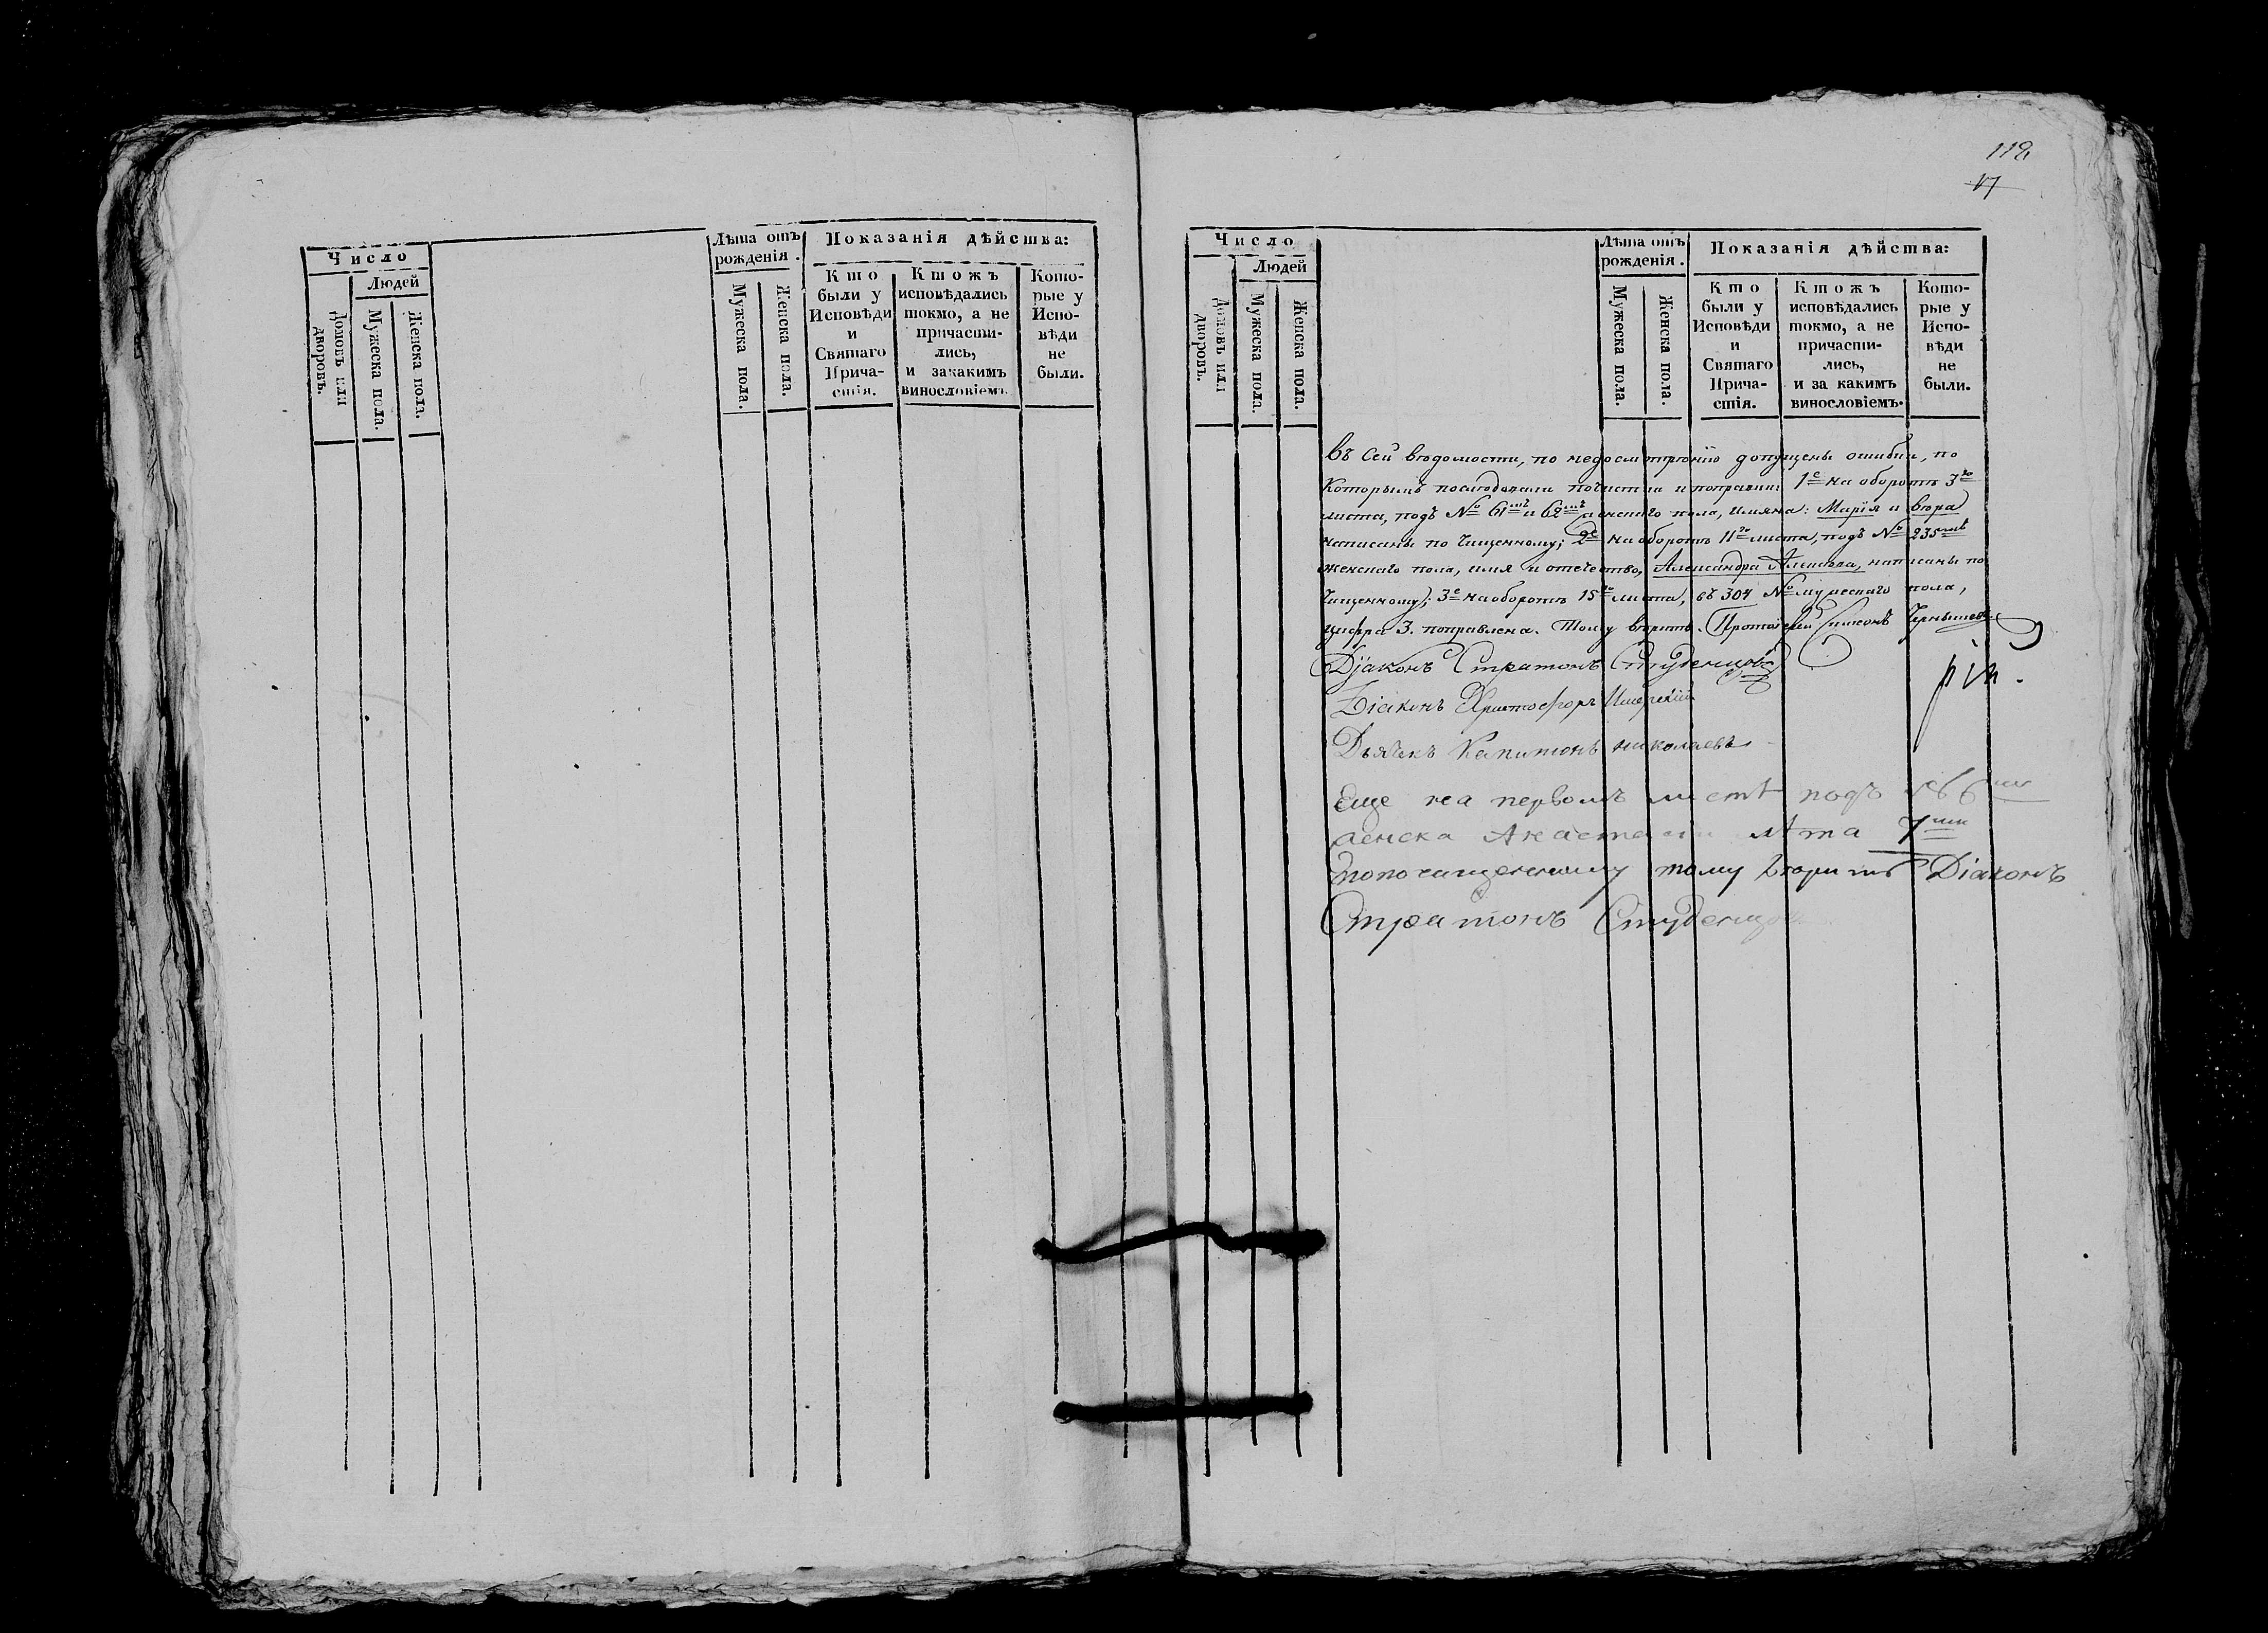 Число
Людей
Домовъ или дворовъ.
Мужеска пола.
Женска пола.
Лѣта отъ рожденія.
Мужеска пола.
Женска пола.
Показанія дѣйства:
Кто были у Исповѣди и Святаго Причастія.
Ктожъ исповѣдались токмо, а не причастились, и закакимъ винословіемъ.
Которые у Исповѣди не были.
112
17
Число
Людей
Домовъ или дворовъ.
Мужеска пола.
Женска пола.
Лѣта отъ рожденія.
Мужеска пола.
Женска пола.
Показанія дѣйства:
Кто были у Исповѣди и Святаго Причастія.
Ктожъ исповѣдались токмо, а не причастились, и за какимъ винословіемъ.
Которые у Исповѣди не были.
Въ сей вѣдомости, по недосмотрѣнію допущены ошибки, по
которымъ послѣдовали почистки и поправки: 1е на оборотѣ 3го
листа, подъ № 61мъ и 62мъ женскаго пола, имяна: Марія и Вѣра
написаны по чищенному; 2е на оборотѣ 11го листа, подъ № 235мъ
женскаго пола, имя и отечество, Александра Алексѣева, написаны по
чищенному; 3е на оборотѣ 15го листа, въ 304 № мужескаго пола,
цифра 3. поправлена. Тому вѣрить. Протоіерей Симеонъ Чернышевъ
Діаконъ Стратонъ Студенцовъ
Діаконъ Христофоръ
Дьячекъ Капитонъ Николаевъ
Еще на первомъ листѣ подъ № 6мъ
женска Анастасіи лѣта 7мь
по почищенному тому вѣрить Діаконъ
Стратонъ Студенцовъ